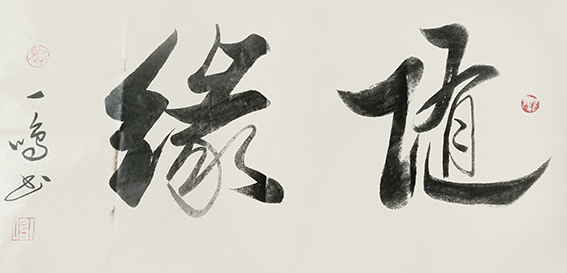 随缘
一鸣书